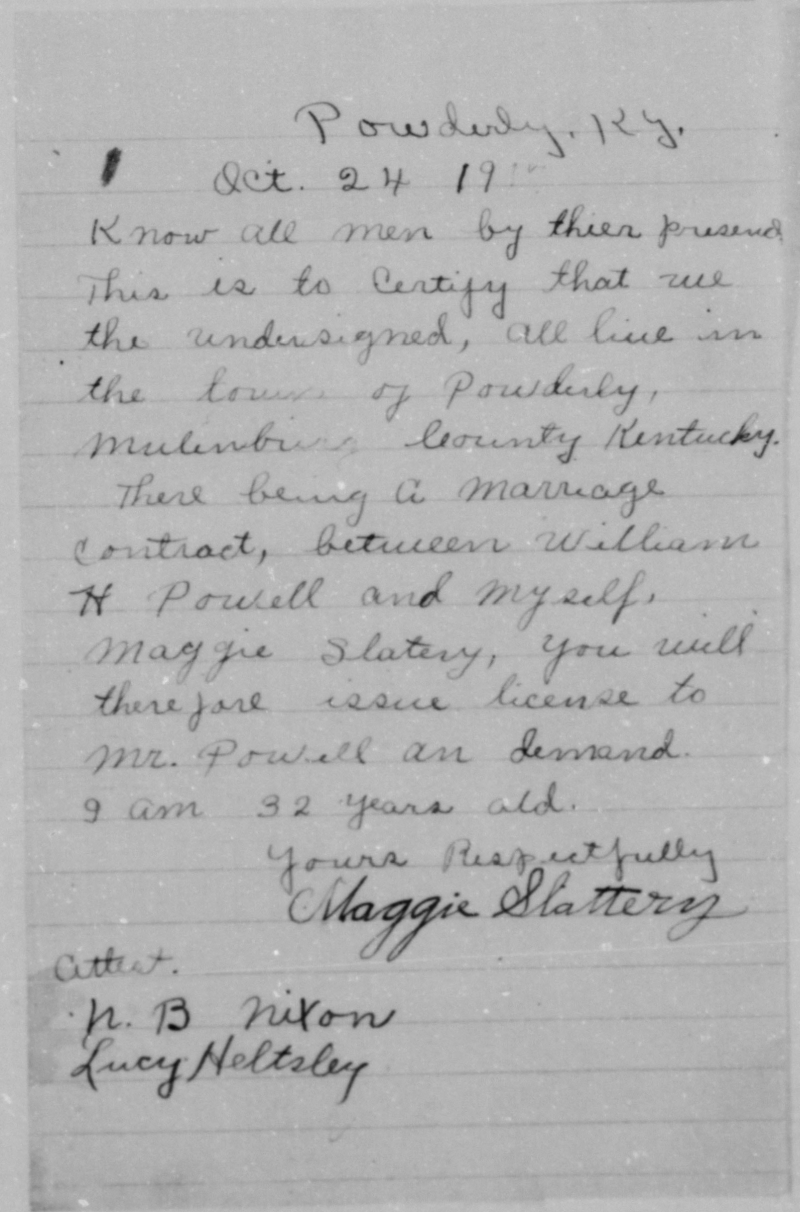 Powderly, Ky.
Oct. 24 19
Know all men by thier presend
This is to Certify that we
the undersigned, all live in
the town of Powderly,
Mulenburg County Kentucky.
There being a Marriage
contract, between William
H Powell and Myself,
Maggie Slatery, you will
therefore issue license to
Mr. Powell an demand.
I am 32 years old.
Yours Respectfully
Maggie Slattery
Attest.
N. B Nixon
Lucy Heltsley